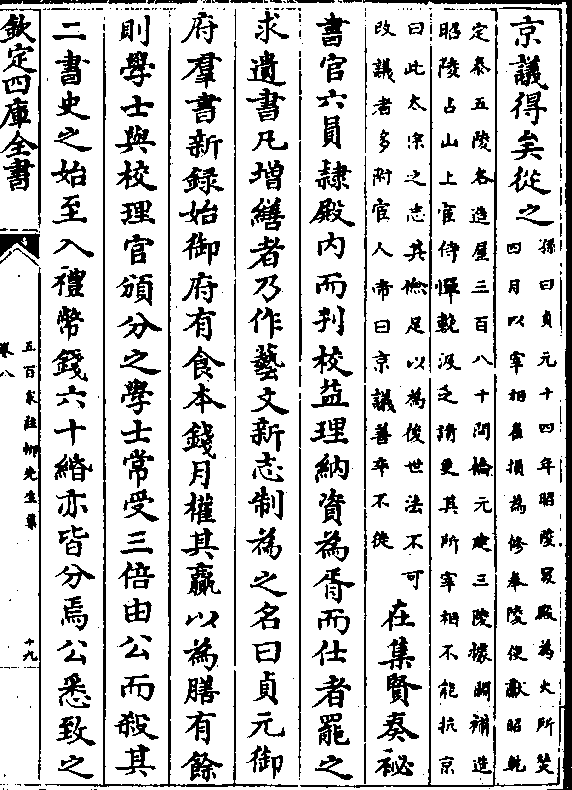 京議得矣從之
孫曰貞元十四年昭陵寢殿為火所焚
四月以宰相崔損為修奉陵使獻昭乾
定泰五陵各造屋三百八十間惟元建三陵據闕補造
昭陵占山上宦侍憚輓汲乏請更其所宰相不能抗京
曰此太宗之志其儉足以為後世法不可
改議者多附宦人帝曰京議善卒不徙
在集賢奏秘
書官六員隷殿内而刋校益理納資為胥而仕者罷之
求遺書凡增繕者乃作藝文新志制為之名曰貞元御
府羣書新録始御府有食本錢月權其贏以為膳有餘
則學士與校理官頒分之學士常受三倍由公而殺其
二書史之始至入禮幣錢六十緡亦皆分焉公悉致之
欽定四庫全書
五百家註柳先生集
卷八
十九